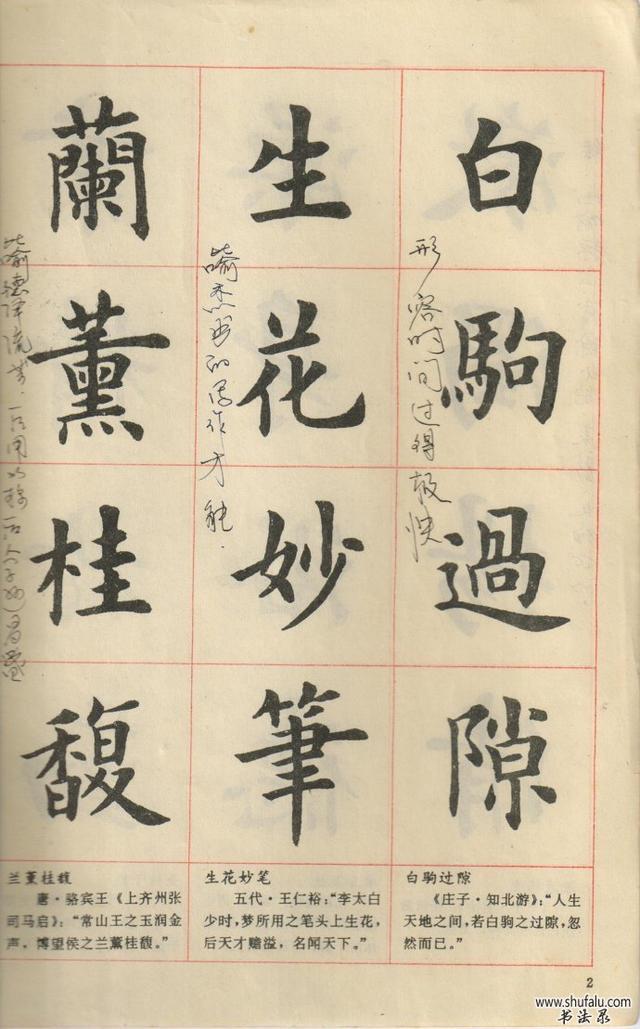 白駒過隙
形容时间过得极快
生花妙筆
喻杰出的写作才能.
蘭薰桂馥
喻德泽流芳.
白驹过隙
《庄子·知北游》：“人生
天地之间，若白驹之过隙，忽
然而已。”
生花妙笔
五代·王仁裕：“李太白
少时，梦所用之笔头上生花，
后天才赡溢，名闻天下。”
兰薰桂馥
唐·骆宾王《上齐州张
司马启》：“常山王之玉润金
声，博望侯之兰薰桂馥。”
2
www.shufalu.com
书法录